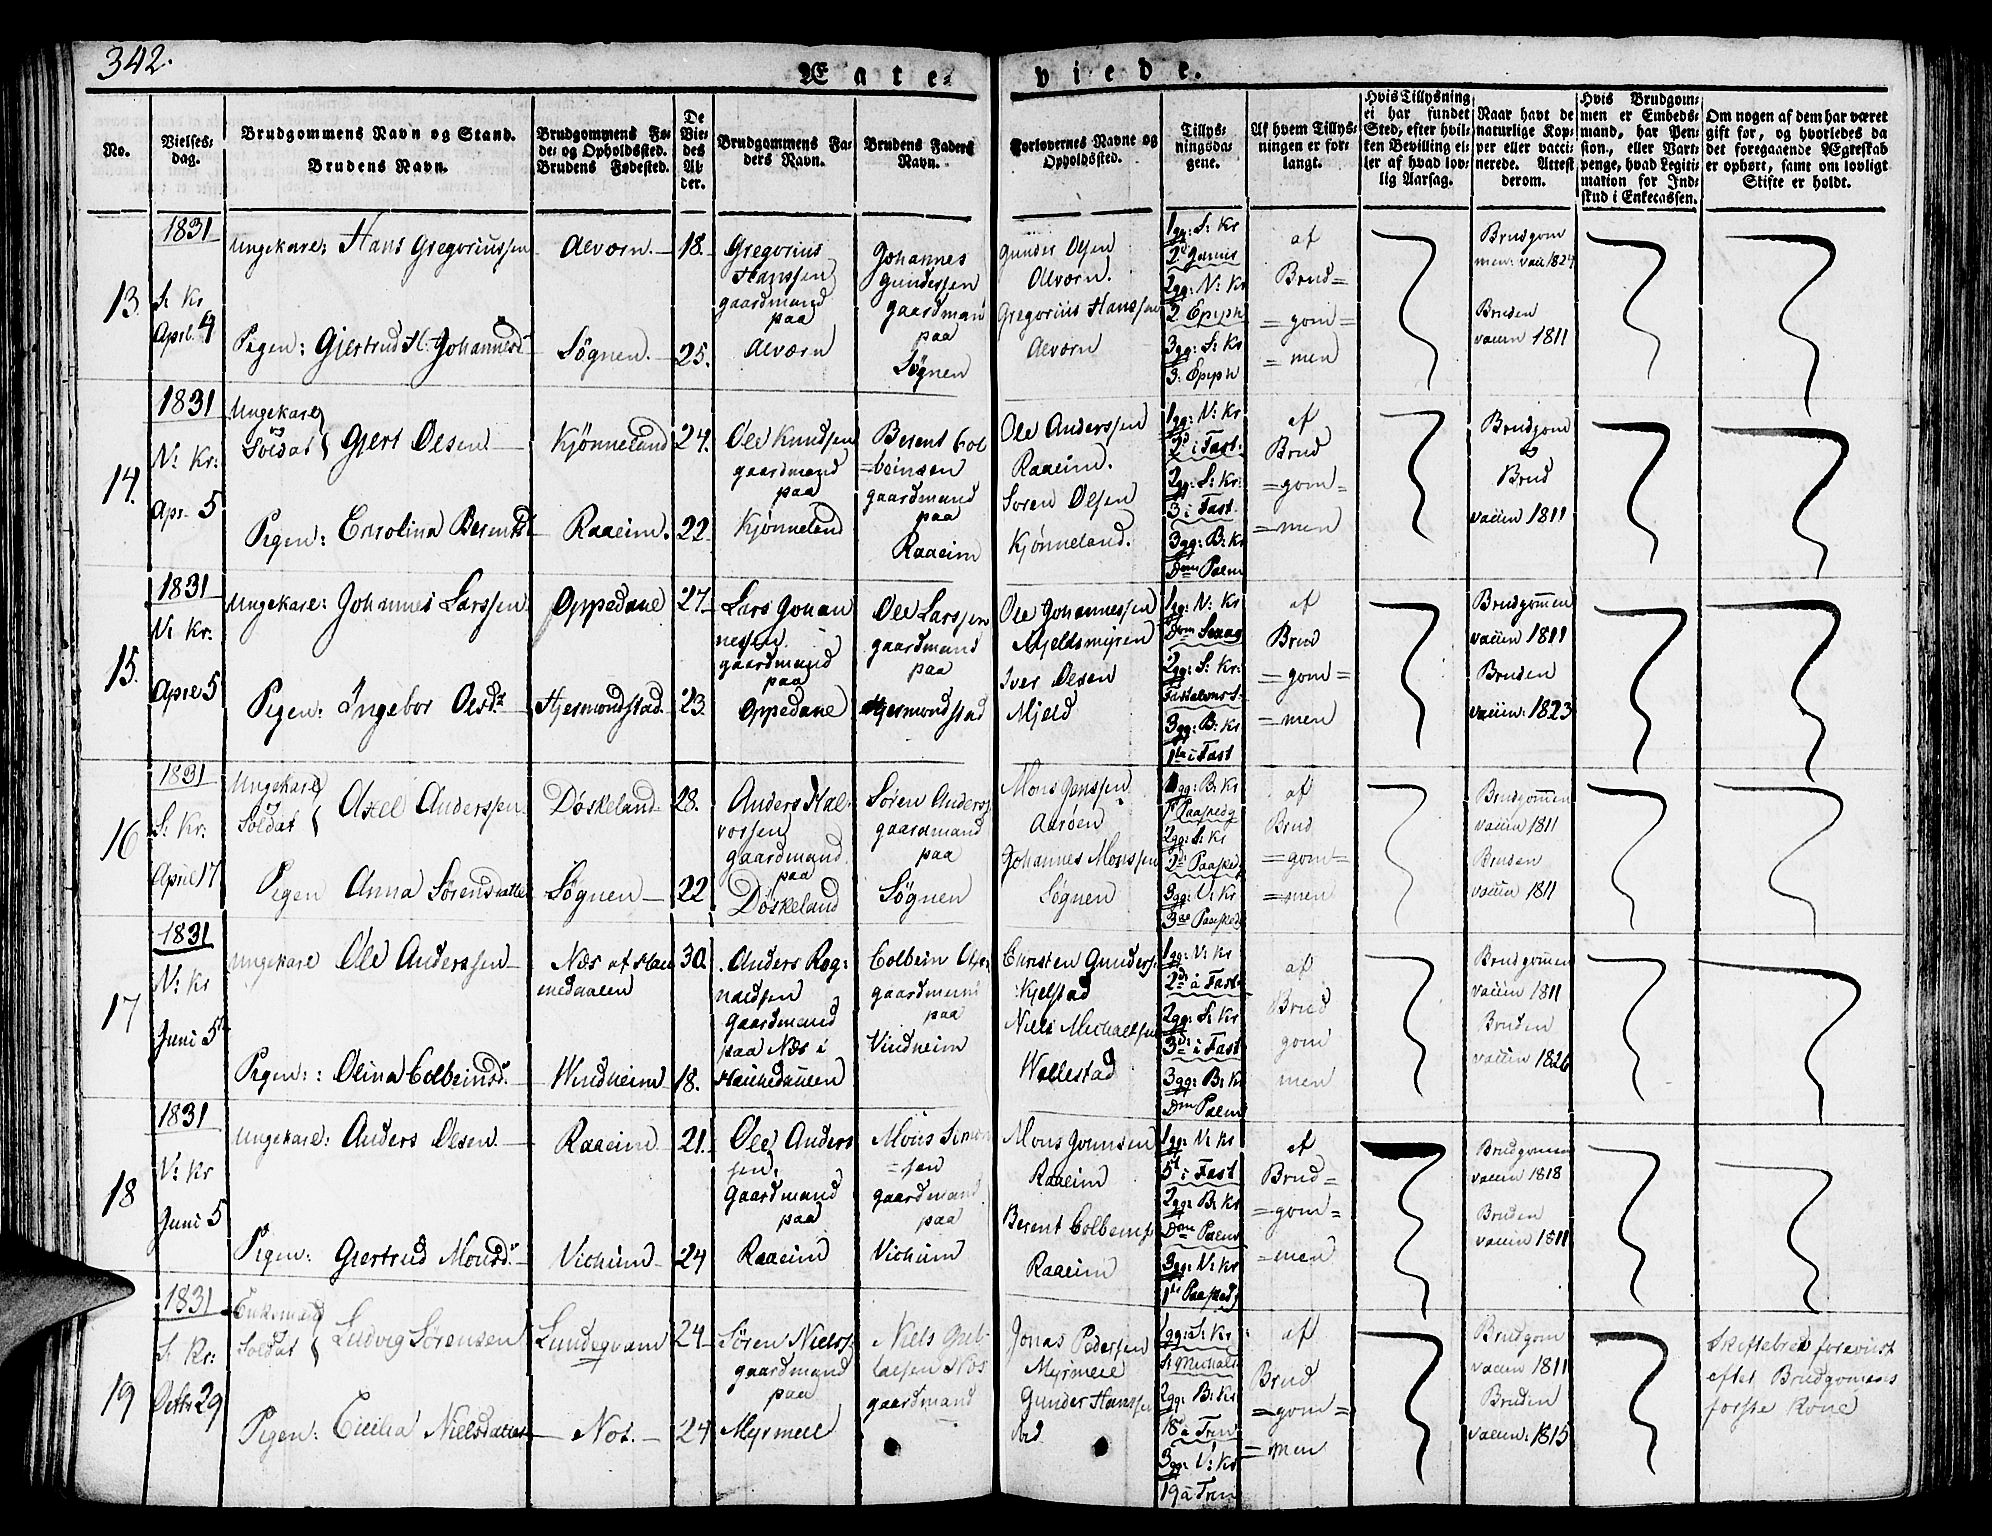 342.
Ægte-
viede.
No.
Vielses-
dag.
Brudgommens Navn og Stand.
Brudens Navn.
Brudgommens Fø-
de- og Opholdssted.
Brudens Fødested.
De
Vie-
des
Al-
der.
Brudgommens Fa-
ders Navn.
Brudens Faders
Navn.
Forlovernes Navne og
Opholdssted.
Tillys-
ningsda-
gene.
Af hvem Tillys-
ningen er for-
langt.
Hvis Tillysning
ei har fundet
Sted, efter hvil-
ken Bevilling el-
ler af hvad lov-
lig Aarsag.
Naar havt de
naturlige Kop-
per eller vacci-
nerede. Attest
derom.
Hvis Brudgom-
men er Embeds-
mand, har Pen-
sion, eller Vart-
penge, hvad Legiti-
mation for Ind-
skud i Enkecassen.
Om nogen af dem har været
gift før, og hvorledes da
det foregaaende Ægteskab
er ophørt, samt om lovligt
Skifte er holdt.
13.
1831
S: Kr
April 4
Ungekarl: Hans Gregoriussen
Pigen: Gjertrud M: Johannesd
Alværn.
Sögnen.
18.
25.
Gregorius
Hanssen
gaardmand
paa
Alværn
Johannes
Gundersen
gaardman
paa
Sögnen
Gunder Olsen
Alværn.
Gregorius Hanssen
Alværn
1gg: S: Kr
2gg: N: Kr
2. Epiph
3gg: S: Kr
3: Epiph
af
Brud=
=gom=
=men
Brudgom
men: vacc 1824
Bruden
vaccin 1811
14.
1831
N: Kr:
Apr. 5
Ungekarl
og
Soldat Gjert Olsen
Pigen: Carolina Berentsd
Kjønneland
Raaeim.
24.
22
Ole Knudsen
gaardmand
paa
Kjønneland
Berent Col
=beinsen
gaardmand
paa
Raaeim
Ole Anderssen
Raaeim.
Søren Olsen
Kjønneland.
1gg: N: Kr
2d i Fast.
2gg: S: Kr:
3 i Fast.
3gg: B: Kr
Dom Palm
af
Brud
=gom=
=men
Brudgom
og
Brud
vaccin 1811
15.
1831
N: Kr:
April 5
Ungekarl: Johannes Larssen
Pigen: Ingebor Olsdr
Oppedal
Hjermondstad
27
23.
Lars Johan
nessen
gaardmand
paa
Oppedal
Ole Larssen
gaardmand
paa
Hjermondstad
Ole Johannessen
Mjeldsmyren
Iver Olsen
Mjeld
1gg: N: Kr
2gg: S: Kr:
Fastelavns S.
3gg: B: Kr
1ste i Fast
af
Brud
=gom=
=men
Brudgommen
vaccin 1811
Bruden
vaccin: 1823
16
1831
S: Kr:
April 17
Ungekarl
og
Soldat Axel Anderssen
Pigen Anna Sørensdatter
Døskeland
Sögnen
28.
22
Anders Hal-
vorssen
gaardmand
paa
Døskeland
Sören Anderss
gaardmand
paa
Sögnen
Mons Jenssen
Aarøen
Johannes Monssen
Sögnen
1gg: B: Kr
1st Paaskedg
2gg: S: Kr
2d Paasked
3gg: N: Kr
3de Paasked
af
Brud
=gom=
=men
Brudgommen
vaccin 1811
Bruden
vaccin 1811
17
1831
N: Kr
Juni 5te
Ungekarl Ole Anderssen
Pigen: Olina Colbeinsd
Næs af Hau
nedalen
Windheim
30
18.
Anders Rog-
naldsen
Gaardmand
paa Næs i
Haukedalen
Colbein Olsen
gaardmand
paa
Vindheim
Christen Gunderss
Kjelstad
Niels Michaelsen
Wallestad
1gg: N: Kr
2d i Fast
2gg: S: Kr
3di i Fast
3gg: B: Kr
Dom Palm
af
Brud
gom
men
Brudgommen
vaccin 1811
Bruden
vaccin 1826
18
1831
N: Kr
Juni 5
Ungekarl: Anders Olsen
Pigen: Gjertrud Monsd
Raaeim
Vichum
21.
24
Ole Anders
sen
Gaardmand
paa
Raaeim
Mons Simon
=sen
gaardmand
paa
Vichum
Mons Johnsen
Raaeim
Berent Colbeins
Raaeim
1gg: N: Kr
5t i Fast
2gg: B: Kr
Dom Palm
3gg: N: Kr
1ste Paaskedg
af
Brud=
=gom=
=men
Brudgommen
vaccin 1818
Bruden
vaccin 1811
19
1831
S: Kr:
Octbr 29
Enkemand
Soldat Ludvig Sørensen
Pigen: Cicilia Nielsdatter
Lundeqvam
Nos.
24
24
Sören Nielss
gaardmand
paa
Myrmel
Niels Gut-
laksen Nos
gaardmand
Jonas Pedersen
Myrmel
Gunder Hanssen
ibid
1gg: S: Kr
S. Michali
2gg: B: Kr
18 a Trin
3gg: V: Kr
19 a Trin
af
Brud
=gom=
=men
Brudgom
vaccin 1811
Bruden
vaccin: 1815
Skiftebrev foreviist
efter Brudgomens
første Kone